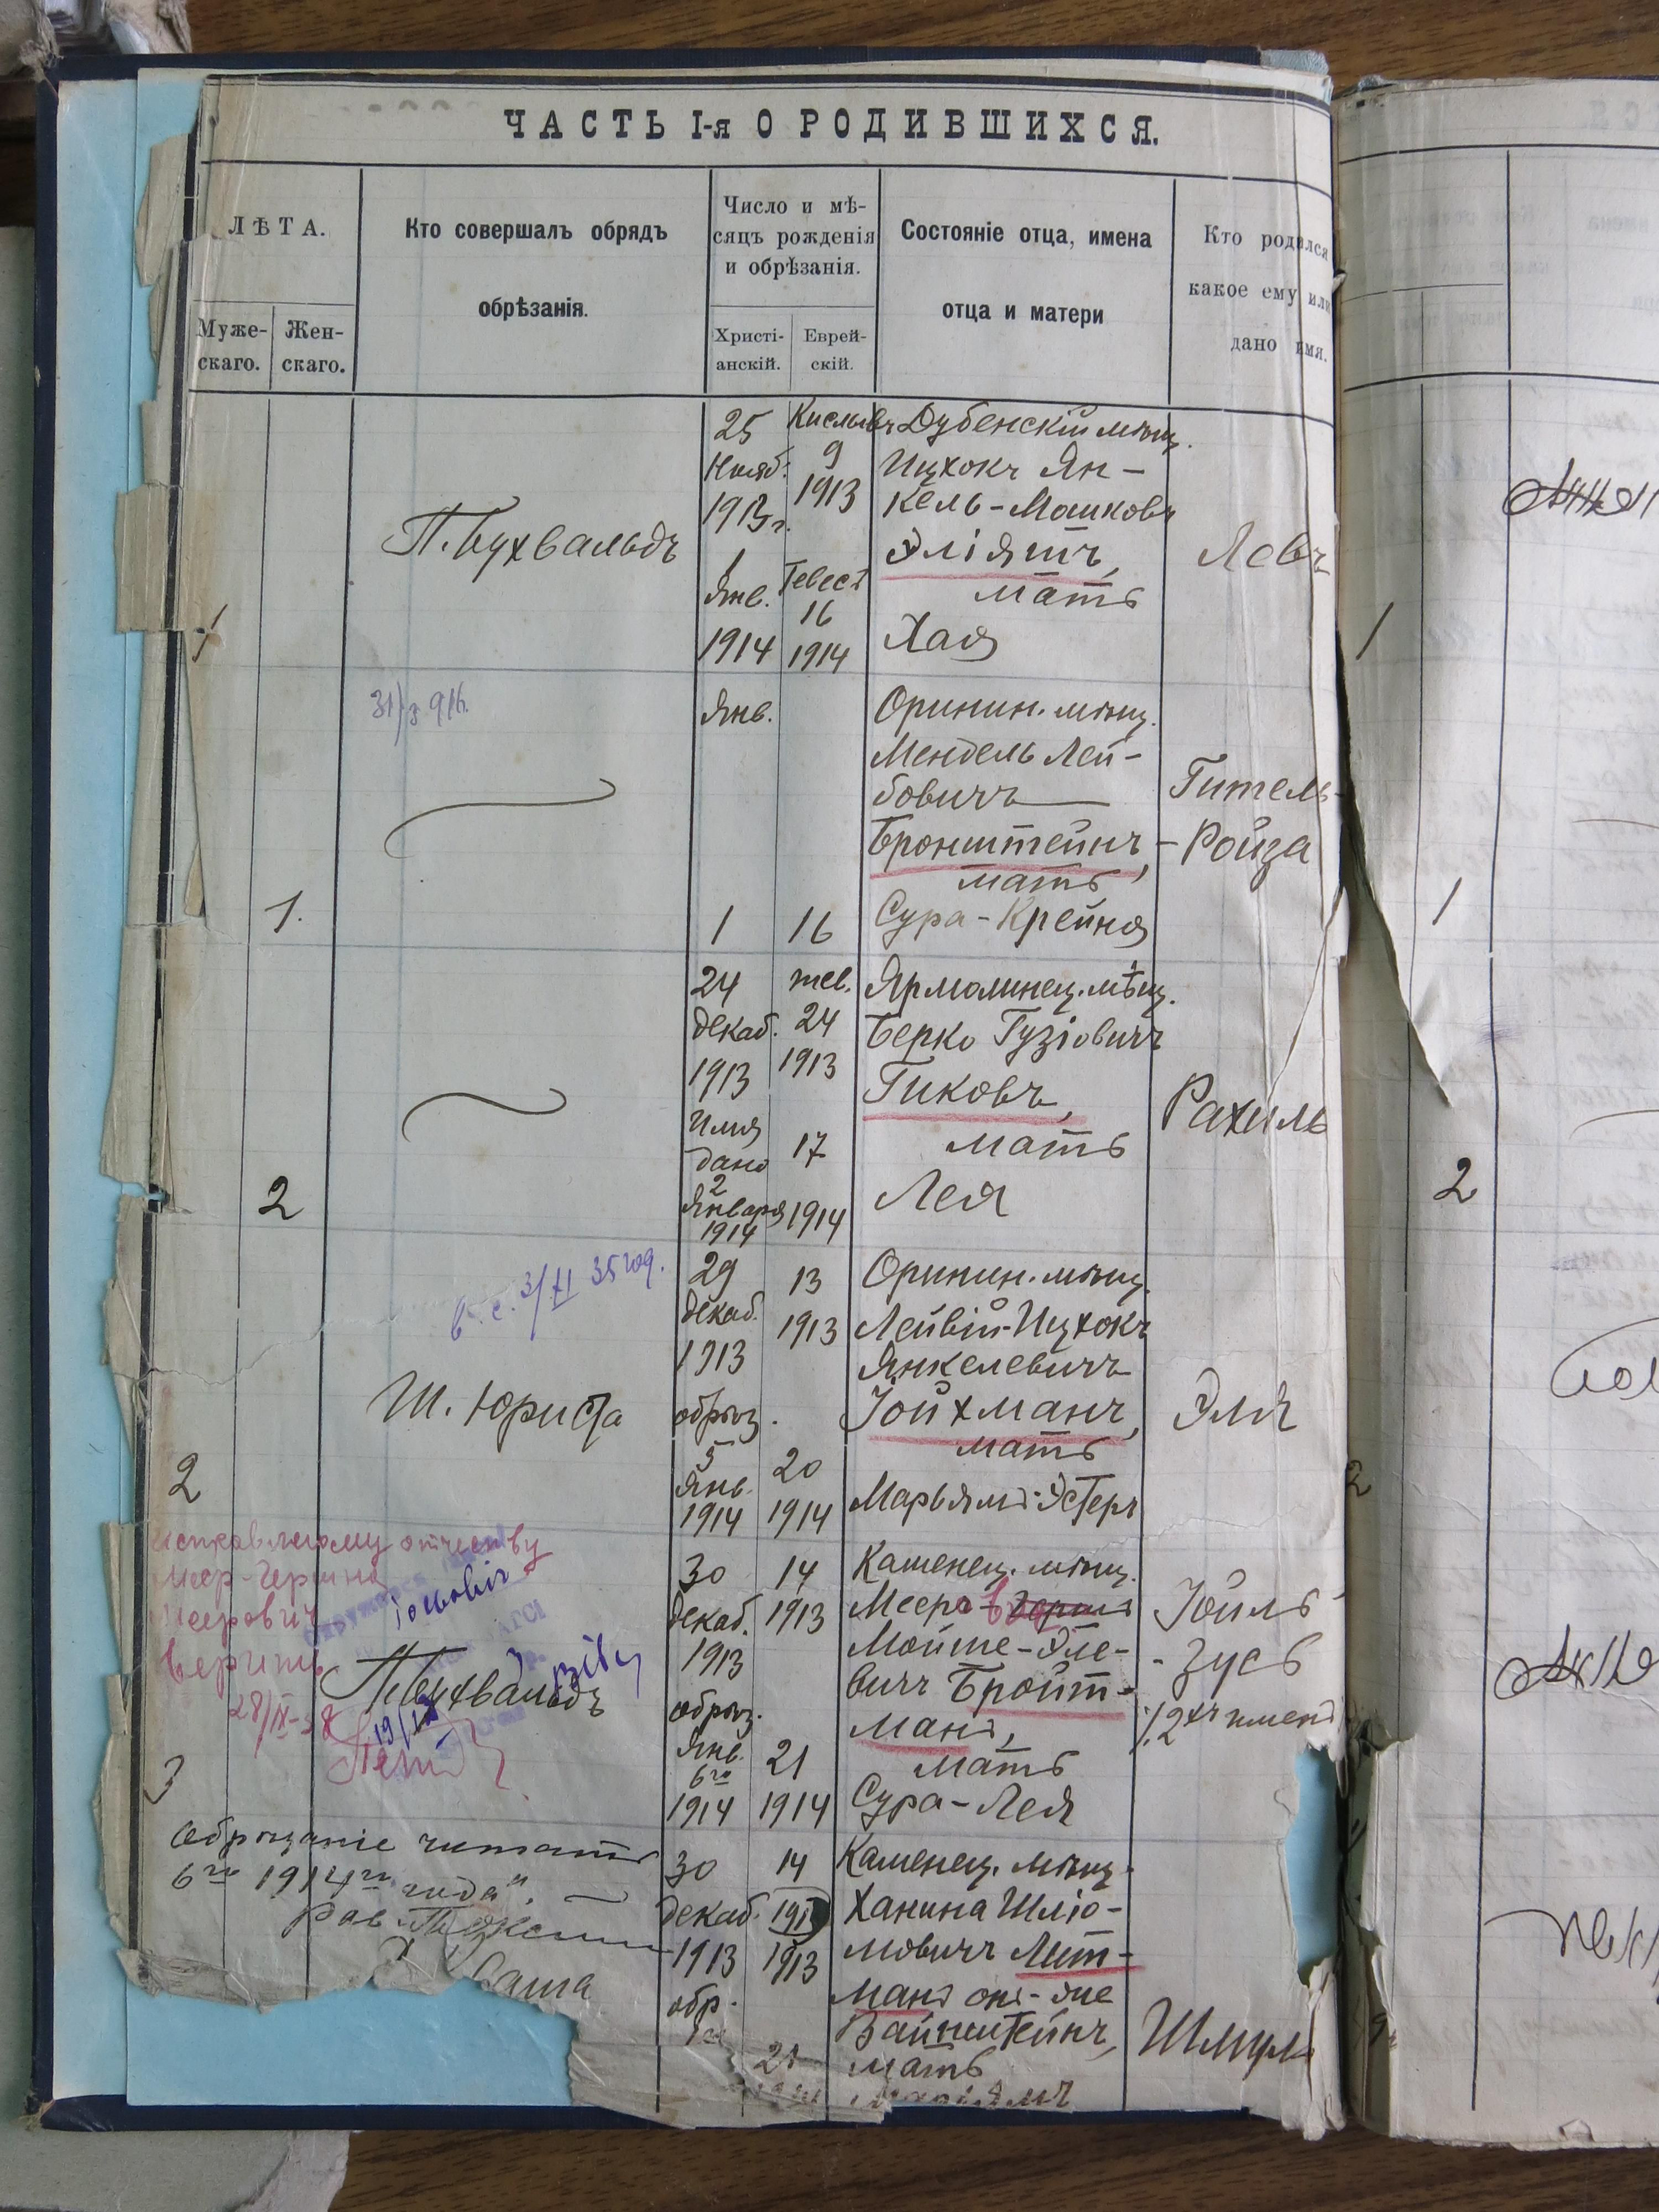 ЧАСТЬ I-я О РОДИВШИХСЯ.
ЛѢТА.
Муже-
скаго.
Жен-
скаго.
Кто совершалъ обрядъ
обрѣзанія.
Число и мѣ-
сяцъ рожденія
и обрѣзанія.
Христі-
анскій.
Еврей-
скій.
Состояніе отца, имена
отца и матери
Кто родился
какое ему или
дано имя.
1
П. Бухвальдъ
25
Нояб.
1913 г.
1
Янв.
1914
Кислевъ
9
1913
Тевест
16
1914
Дубенскій мѣщ.
Ицхокъ Ян-
кель-Машковъ
Эліяшъ,
мать
Хая
Левъ
1
1.
Янв.
1
16
Оринин. мѣщ.
Мендель Лей-
бовичъ
Бронштейнъ,
мать
Сура-Крейна
Гитель-
- Ройза
1
2
24
декаб.
1913
Имя
дано
2
Января
1914
тев.
24
1913
17
1914
Ярмолинец. мѣщ.
Берко Гузіовичъ
Гиковъ,
мать
Лея
Рахиль
2
3/XI 35 год.
2
Ш. Юриста
29
декаб.
1913
обрѣз.
5
Янв.
1914
13
1913
20
1914
Оринин. мѣщ.
Лейвій-Ицхокъ
Янкелевичъ
Іойхманъ,
мать
Марьямъ-Эстеръ
Эля
2
Исправленому отчеству
Меер-Герш
Меерович
28/IX-38
П. Бухвальдъ
3
30
декаб.
1913
обрѣз.
Янв.
6го
1914
14
1913
21
1914
Каменец. мѣщ.
Мееръ-
Мойше-Эле-
вичъ Бройт-
манъ,
мать
Сура-Лея
Іойль-
- Зусь
2хъ имен
Обрѣзаніе читать
6го 1914го года".
Рав
30
декаб.
1913
обр.
14
1913
21
Каменец. мѣщ.
Ханина Шліо-
мовичъ Лит-
манъ онъ-же
Вайнштейнъ,
мать
Шмуль